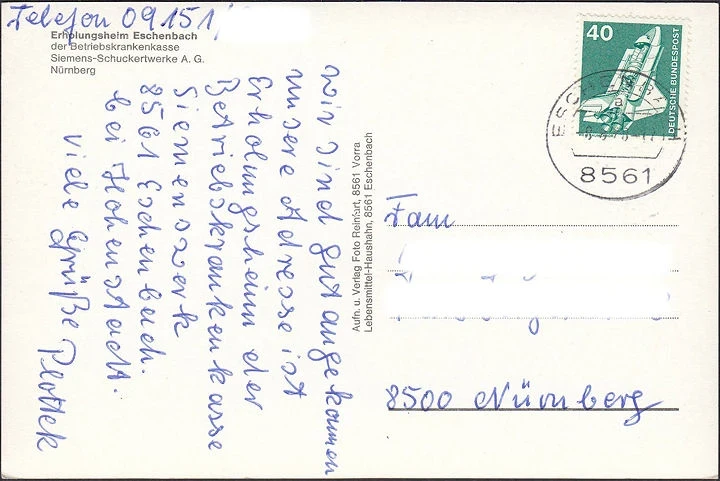 Telefon 09151/
Erholungsheim Eschenbach
der Betriebskrankenkasse
Siemens-Schuckertwerke A. G.
Nürnberg
wir sind gut angekommen
unsere Adresse ist
Erholungsheim der
Betriebskrankenkasse
Siemenswerk
8561 Eschenbach.
bei Hohenstadt.
Viele Grüße Plottek
Aufn. u. Verlag Foto Reinfart, 8561 Vorra
Lebensmittel-Haushahn, 8561 Eschenbach
40
DEUTSCHE BUNDESPOST
8561
Fam
8500 Nürnberg